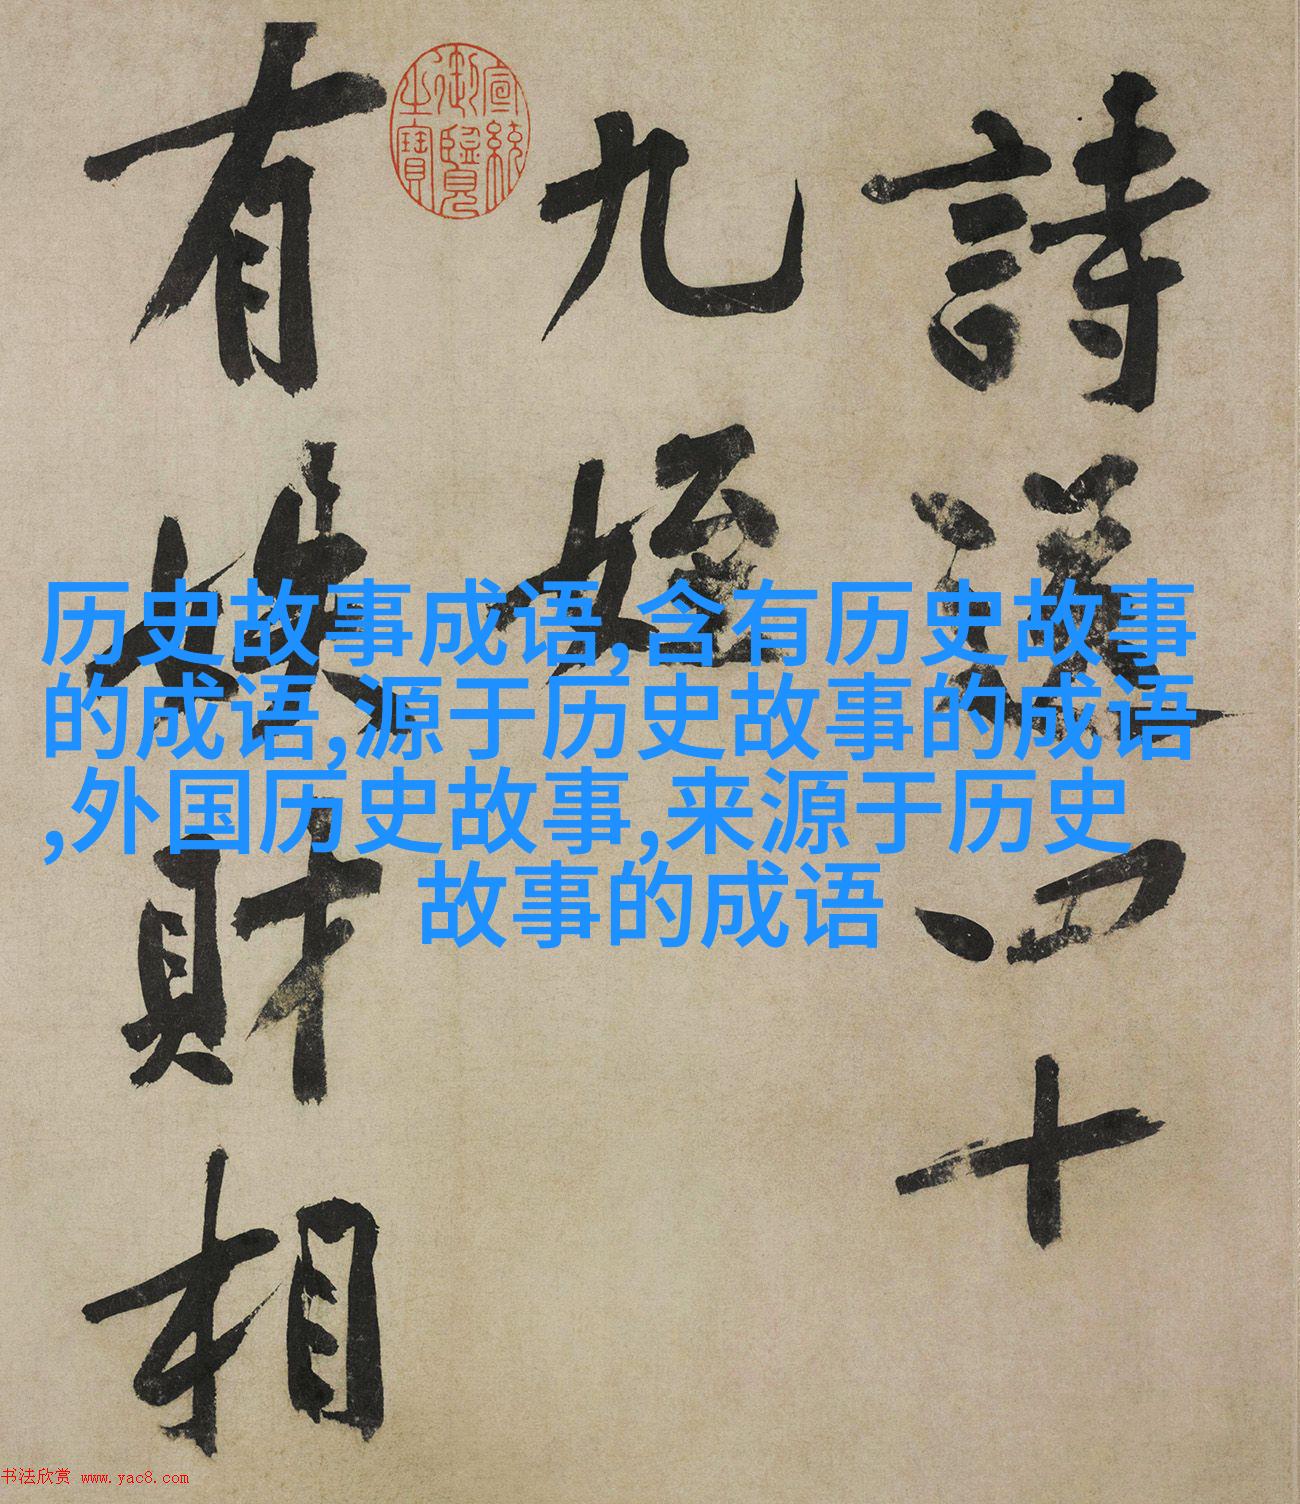 詩送四十
九姪
有財相
宣統御覽之寶
历史故事成语,含有历史故事
的成语,源于历史故事的成语
,外国历史故事,来源于历史
故事的成语
书法欣赏 www.yac8.com